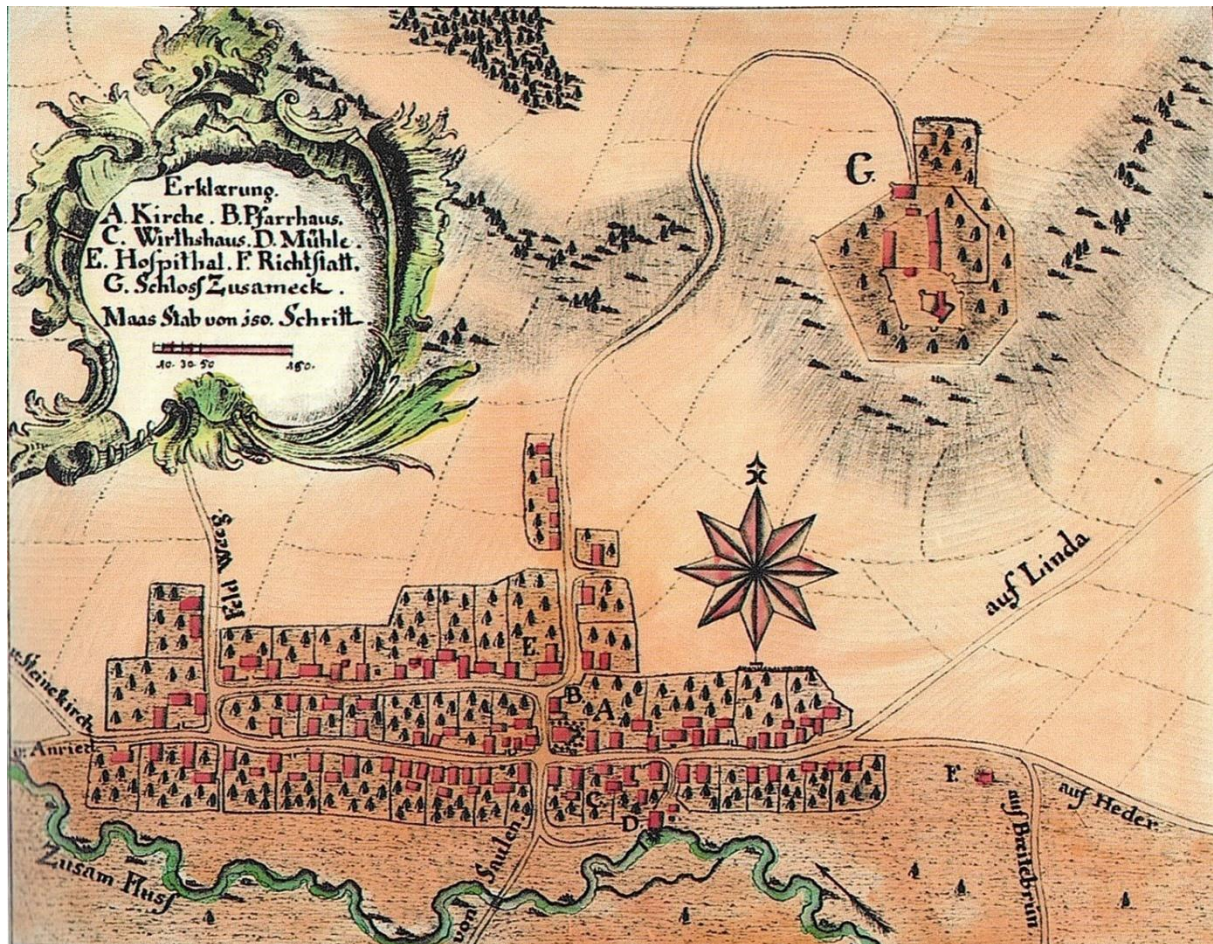 Erklærung.
A. Kirche. B. Pfarrhaus.
C. Wirthshaus. D. Mühle.
E. Hospithal. F. Richtstatt.
G. Schloss Zusameck.
Maas Stab von 150. Schritt
10. 30. 50 150.
G.
Feld Weeg.
auf Linda
E
B.
A
Steinekirch
v: Anried
C
D
F.
auf Heder
auf Breitebrun
Zusam Fluss
von Saulen.